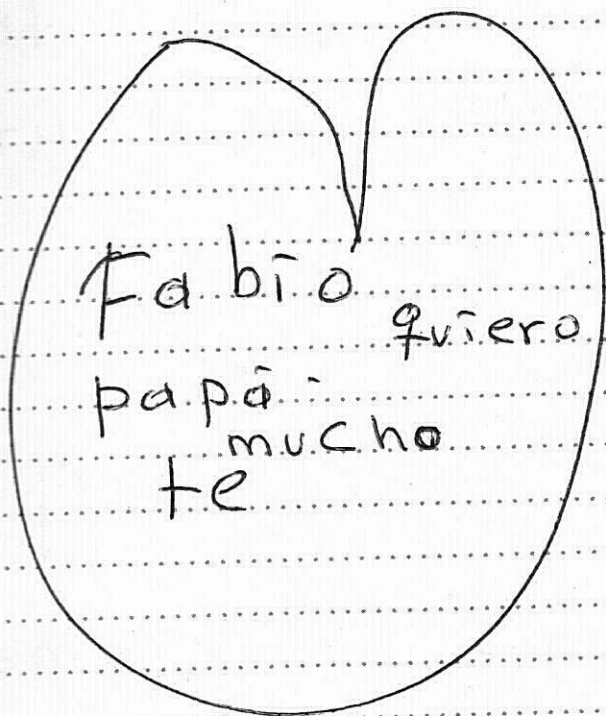 Fabio
quiero
papá
mucho
te